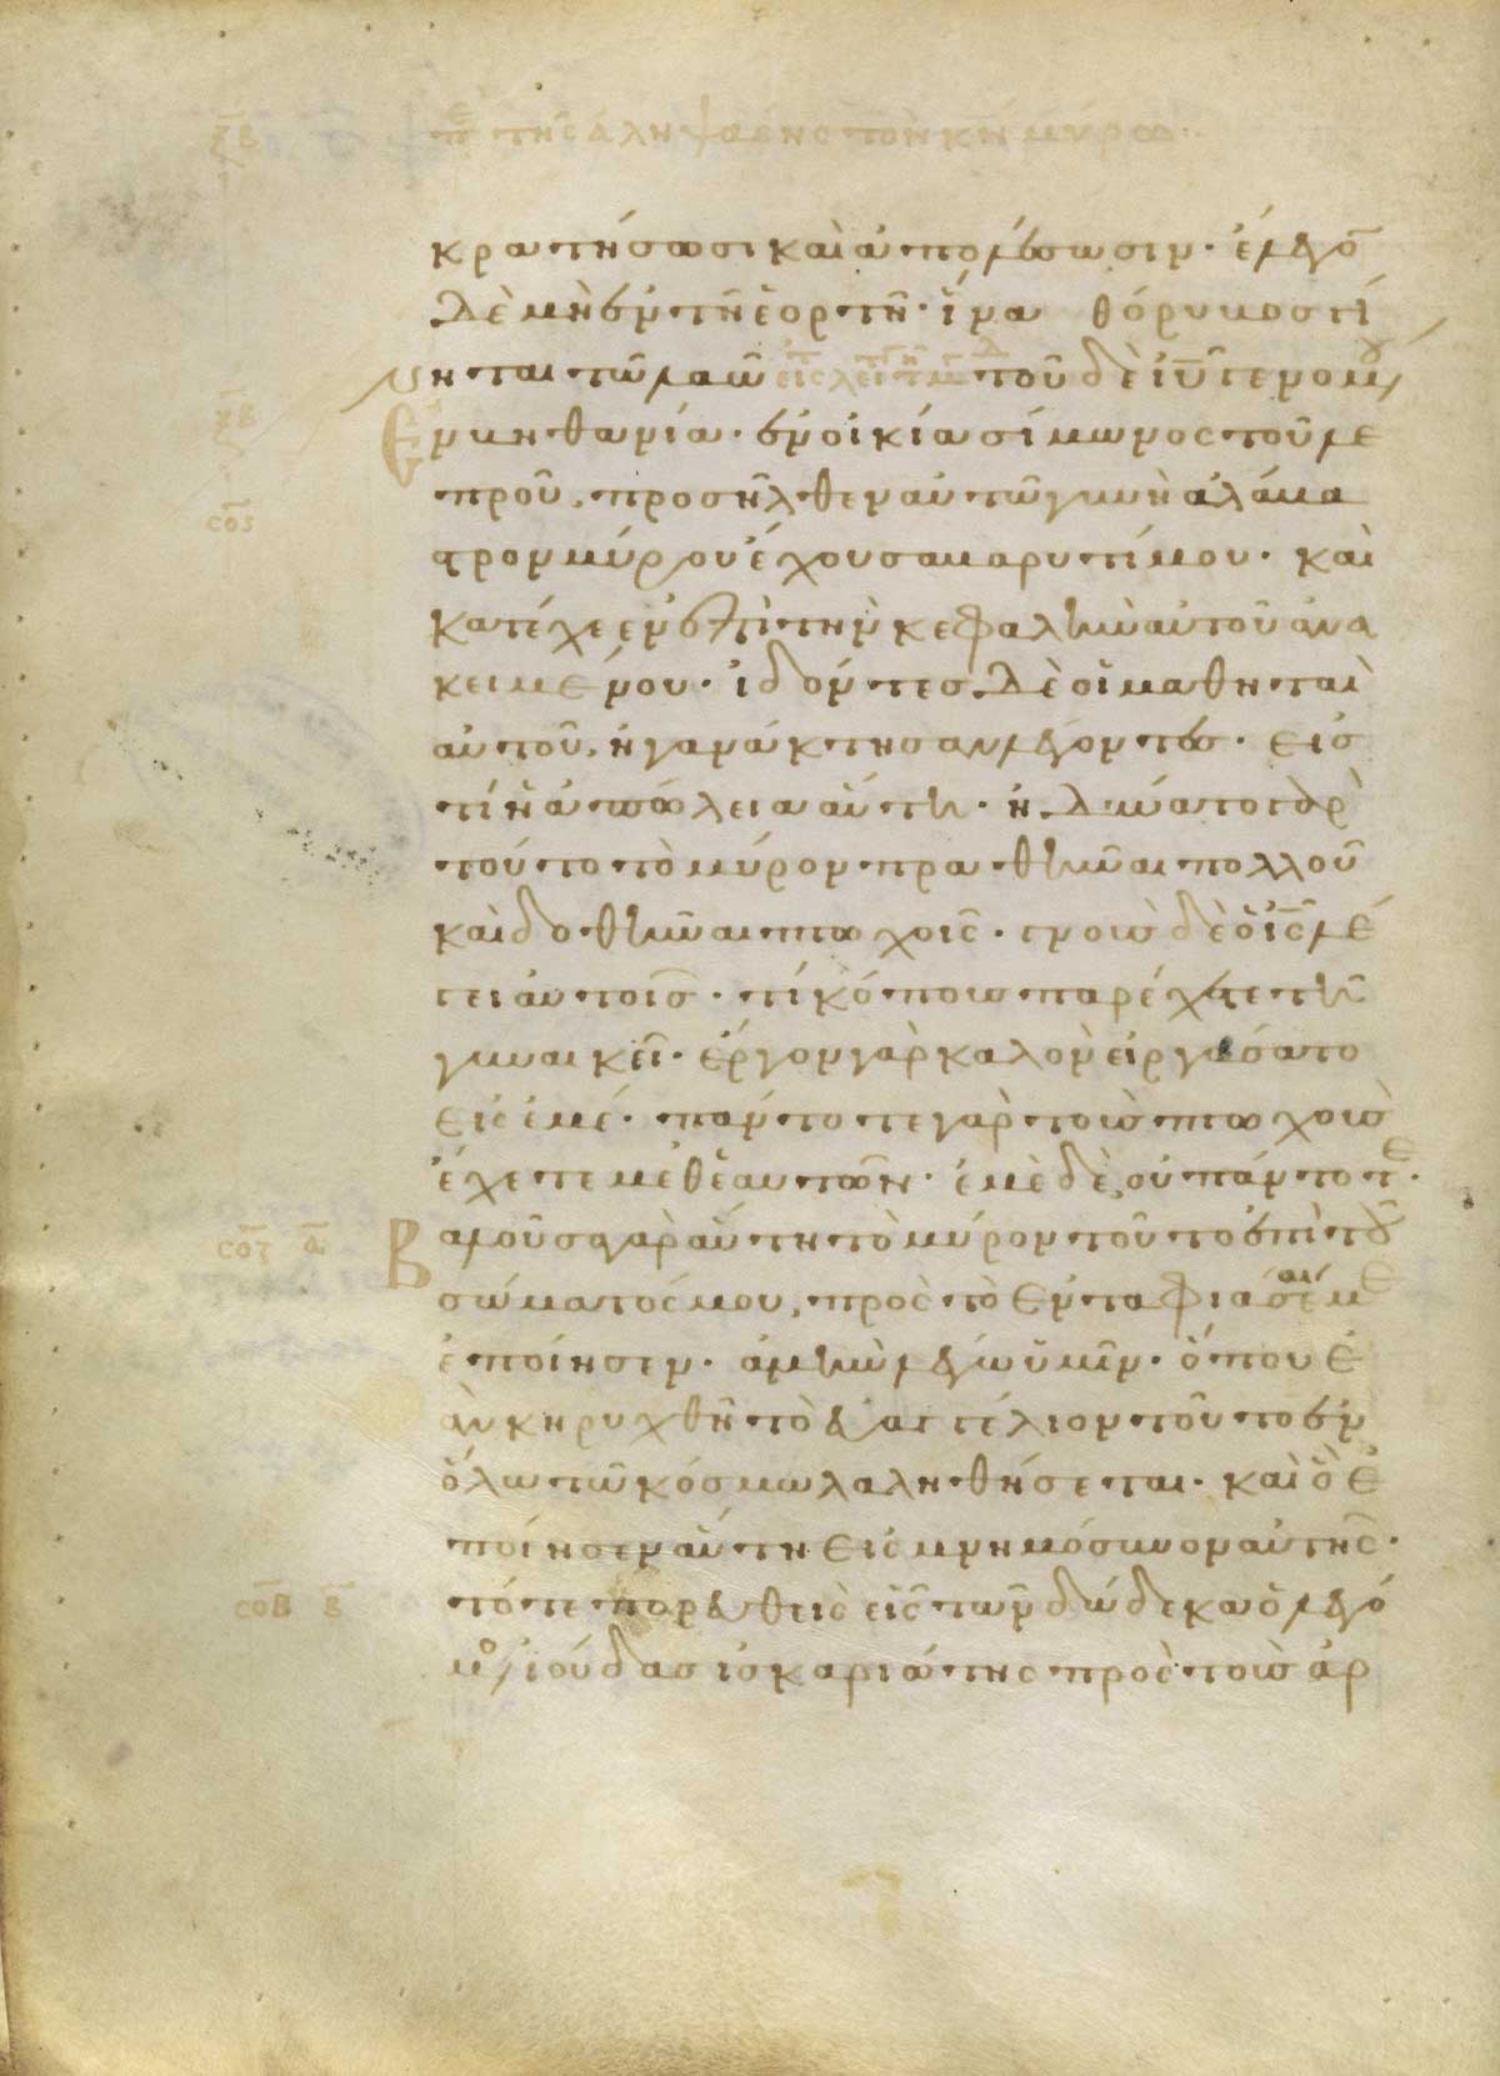 ξβ π̅ε̅ τῆς ἀλειψάσης τὸν κ̅ν̅ μύρω·
κρατήσωσι καὶ ἀποκτένωσιν· ἔλεγο̅
δὲ μὴ ἐν τῆ ἑορτῆ· ἵνα θόρυβος γέ
νηται τῶ λαῶ τοῦ δὲ ι̅υ̅ γενομέ
Εν βηθανία· ἐν οἰκία σίμωνος τοῦ λε
προῦ, προσῆλθεν αὐτῶ γυνὴ ἀλάβα
στρον μύρου ἔχουσα βαρυτίμου· καὶ
κατέχεεν ἐπὶ τὴν κεφαλὴν αὐτοῦ ἀνα
κειμένου· ἰδόντες δὲ οἱ μαθηταὶ
αὐτοῦ, ἠγανάκτησαν λέγοντες· εἰς
τί ἡ ἀπώλεια αὕτη· ἠδύνατο γὰρ
τοῦτο τὸ μύρον πραθῆναι πολλοῦ
καὶ δοθῆναι πτωχοῖς· γνοὺς δὲ ὁ ι̅ς̅ λέ
γει αὐτοῖς· τί κόπους παρέχετε τῆ
γυναικεί· ἔργον γὰρ καλὸν εἰργάσατο
εἰς ἐμέ· πάντοτε γὰρ τοὺς πτωχοὺς
ἔχετε μεθ' ἑαυτῶν· ἐμὲ δὲ, οὐ πάντοτε·
σο̅ζ̅ α̅ Βαλοῦσα γὰρ αὕτη τὸ μύρον τοῦτο ἐπὶ τοῦ
σώματός μου, πρὸς τὸ ἐνταφιάσαι με
ἐποίησεν· ἀμὴν λέγω ὑμῖν· ὅπου ἐ
ὰν κηρυχθῆ τὸ εὐαγγέλιον τοῦτο ἐν
ὅλω τῶ κόσμω λαληθήσεται· καὶ ὃ ἐ
ποίησεν αὕτη εἰς μνημόσυνον αὐτῆς·
τότε πορευθεὶς εἷς τῶν δώδεκα ὁ λεγό
μ̊/ ἰούδας ἰσκαριώτης πρὸς τοὺς ἀρ